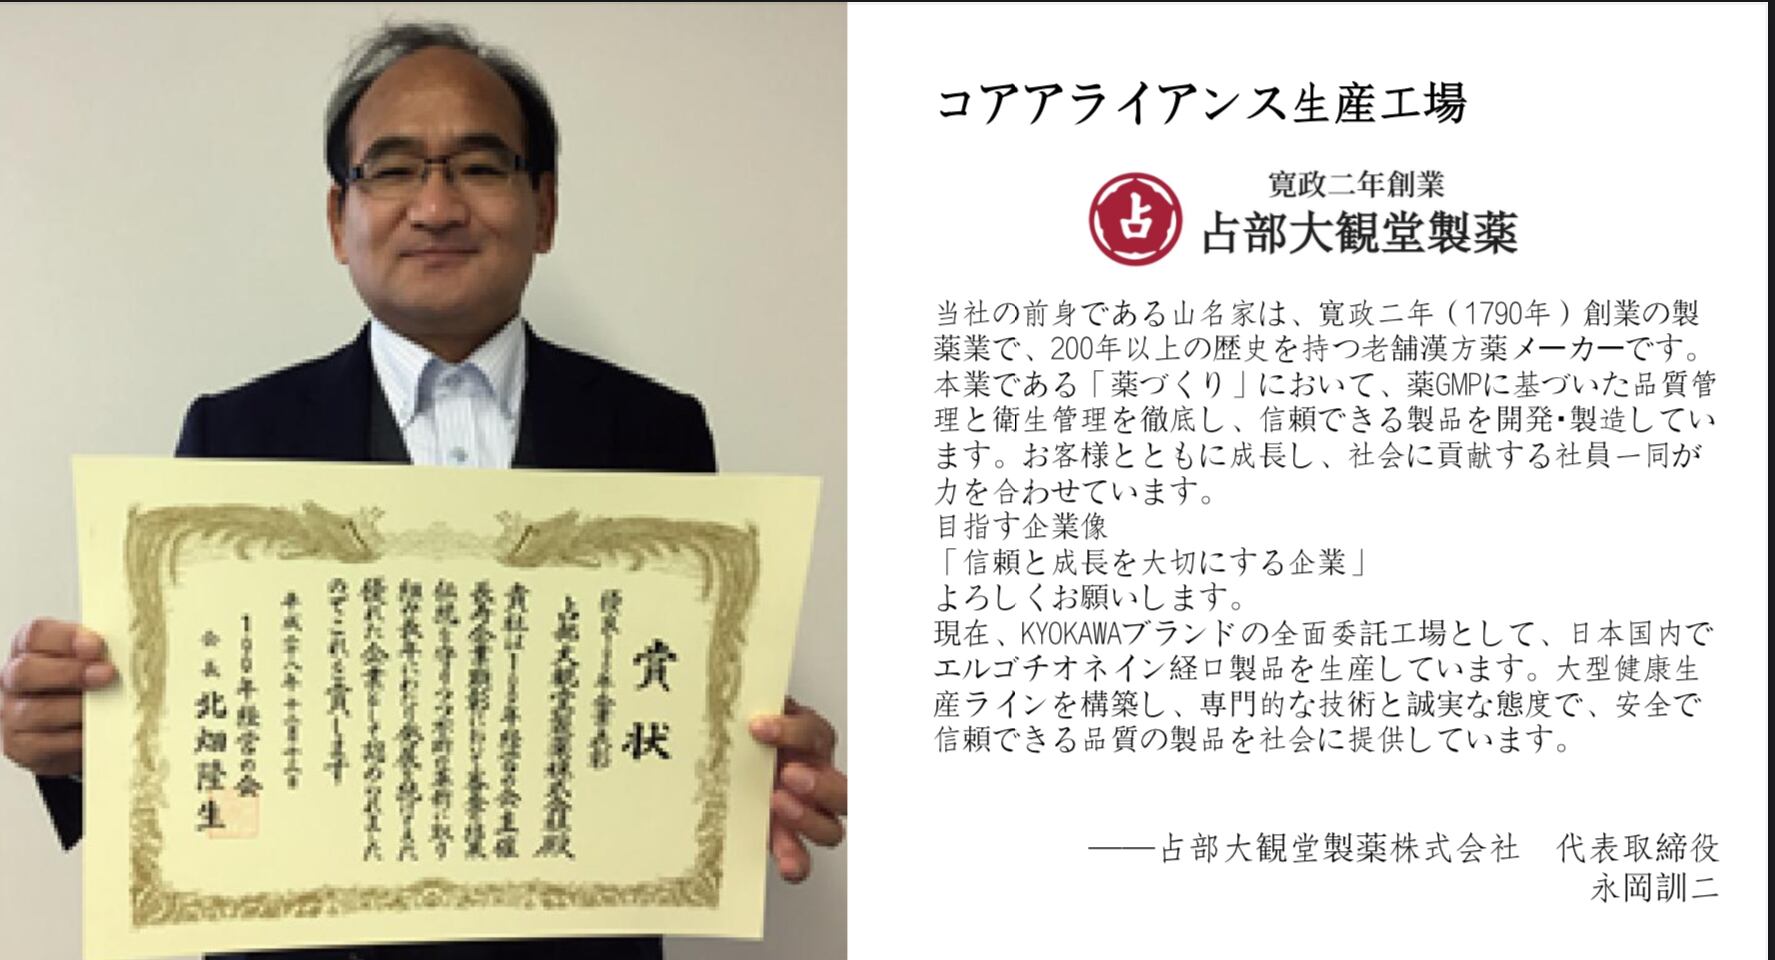 賞状
優良100年企業表彰
占部大観堂製薬株式会社殿
貴社は100年経営の会主催
長寿企業
伝統を守りつつ
の
優れた企業として認められました
のでこれを賞します
平成廿八年十二月十六日
100年経営の会
会長 北畑隆生
コアアライアンス生産工場
占
寛政二年創業
占部大観堂製薬
当社の前身である山名家は、寛政二年（1790年）創業の製
薬業で、200年以上の歴史を持つ老舗漢方薬メーカーです。
本業である「薬づくり」において、薬GMPに基づいた品質管
理と衛生管理を徹底し、信頼できる製品を開発・製造してい
ます。お客様とともに成長し、社会に貢献する社員一同が
力を合わせています。
目指す企業像
「信頼と成長を大切にする企業」
よろしくお願いします。
現在、KYOKAWAブランドの全面委託工場として、日本国内で
エルゴチオネイン経口製品を生産しています。大型健康生
産ラインを構築し、専門的な技術と誠実な態度で、安全で
信頼できる品質の製品を社会に提供しています。
——占部大観堂製薬株式会社　代表取締役
永岡訓二